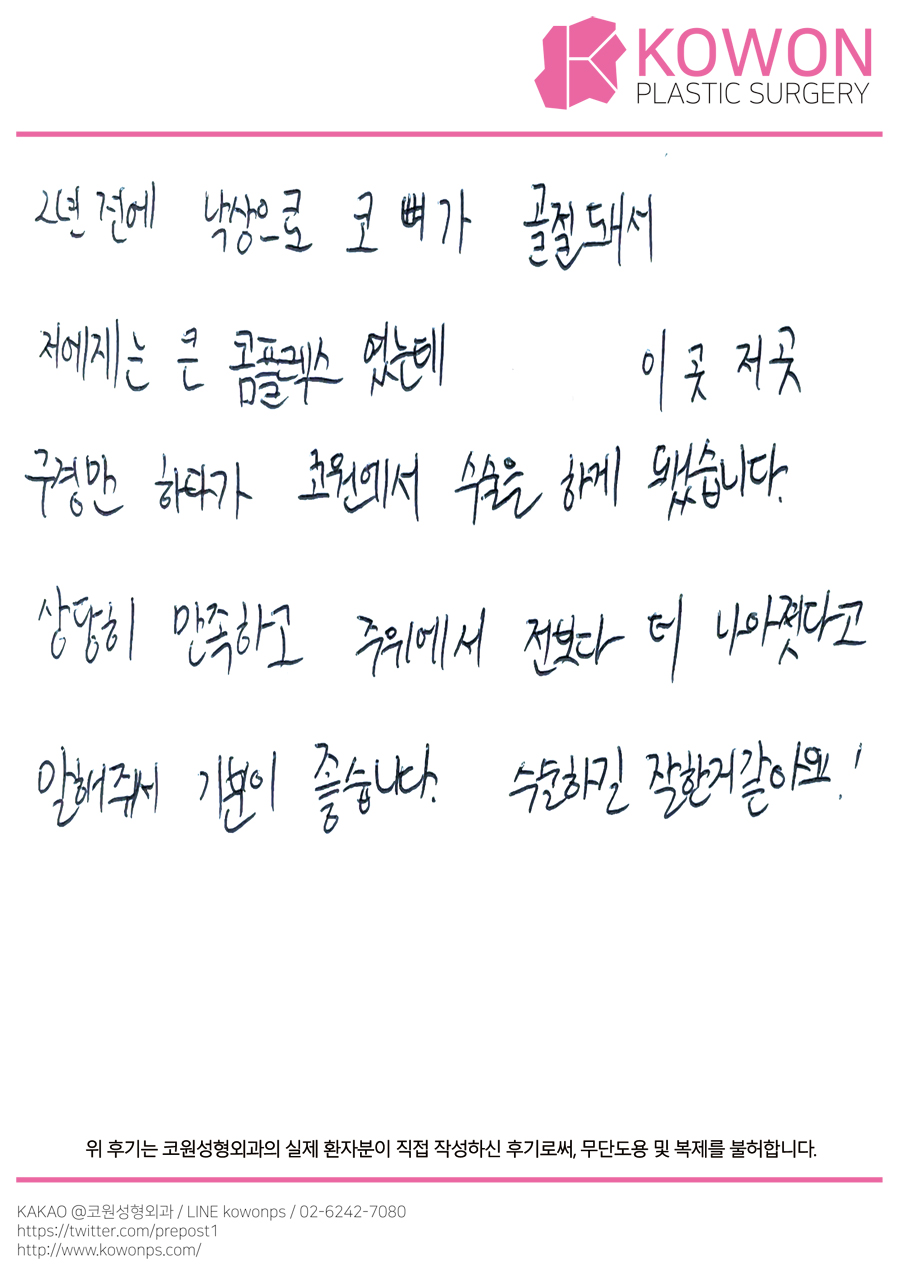 KOWON
PLASTIC SURGERY
2년 전에 낙상으로 코 뼈가 골절돼서
저에게는 큰 콤플렉스 였는데 이 곳 저 곳
구경만 하다가 코원에서 수술을 하게 됐습니다.
상당히 만족하고 주위에서 전보다 더 나아졋다고
말해줘서 기분이 좋습니다. 수술하길 잘한거같아요!
위 후기는 코원성형외과의 실제 환자분이 직접 작성하신 후기로써, 무단도용 및 복제를 불허합니다.
KAKAO @코원성형외과 / LINE kowonps / 02-6242-7080
https://twitter.com/prepost1
http://www.kowonps.com/